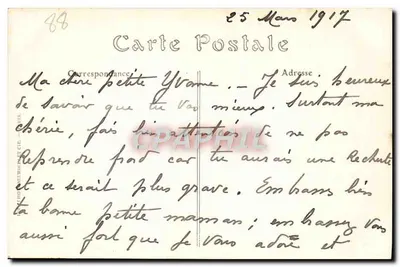 88
25 Mars 1917
Carte Postale
Correspondance
Adresse
Ma chère petite Yvonne. - Je suis heureux
de savoir que tu vas mieux. Surtout ma
chérie, fais bien attention de ne pas
reprendre froid car tu aurais une rechute
et ce serait plus grave. Embrasse bien
ta bonne petite maman; embrassez vous
aussi fort que je vous adore et